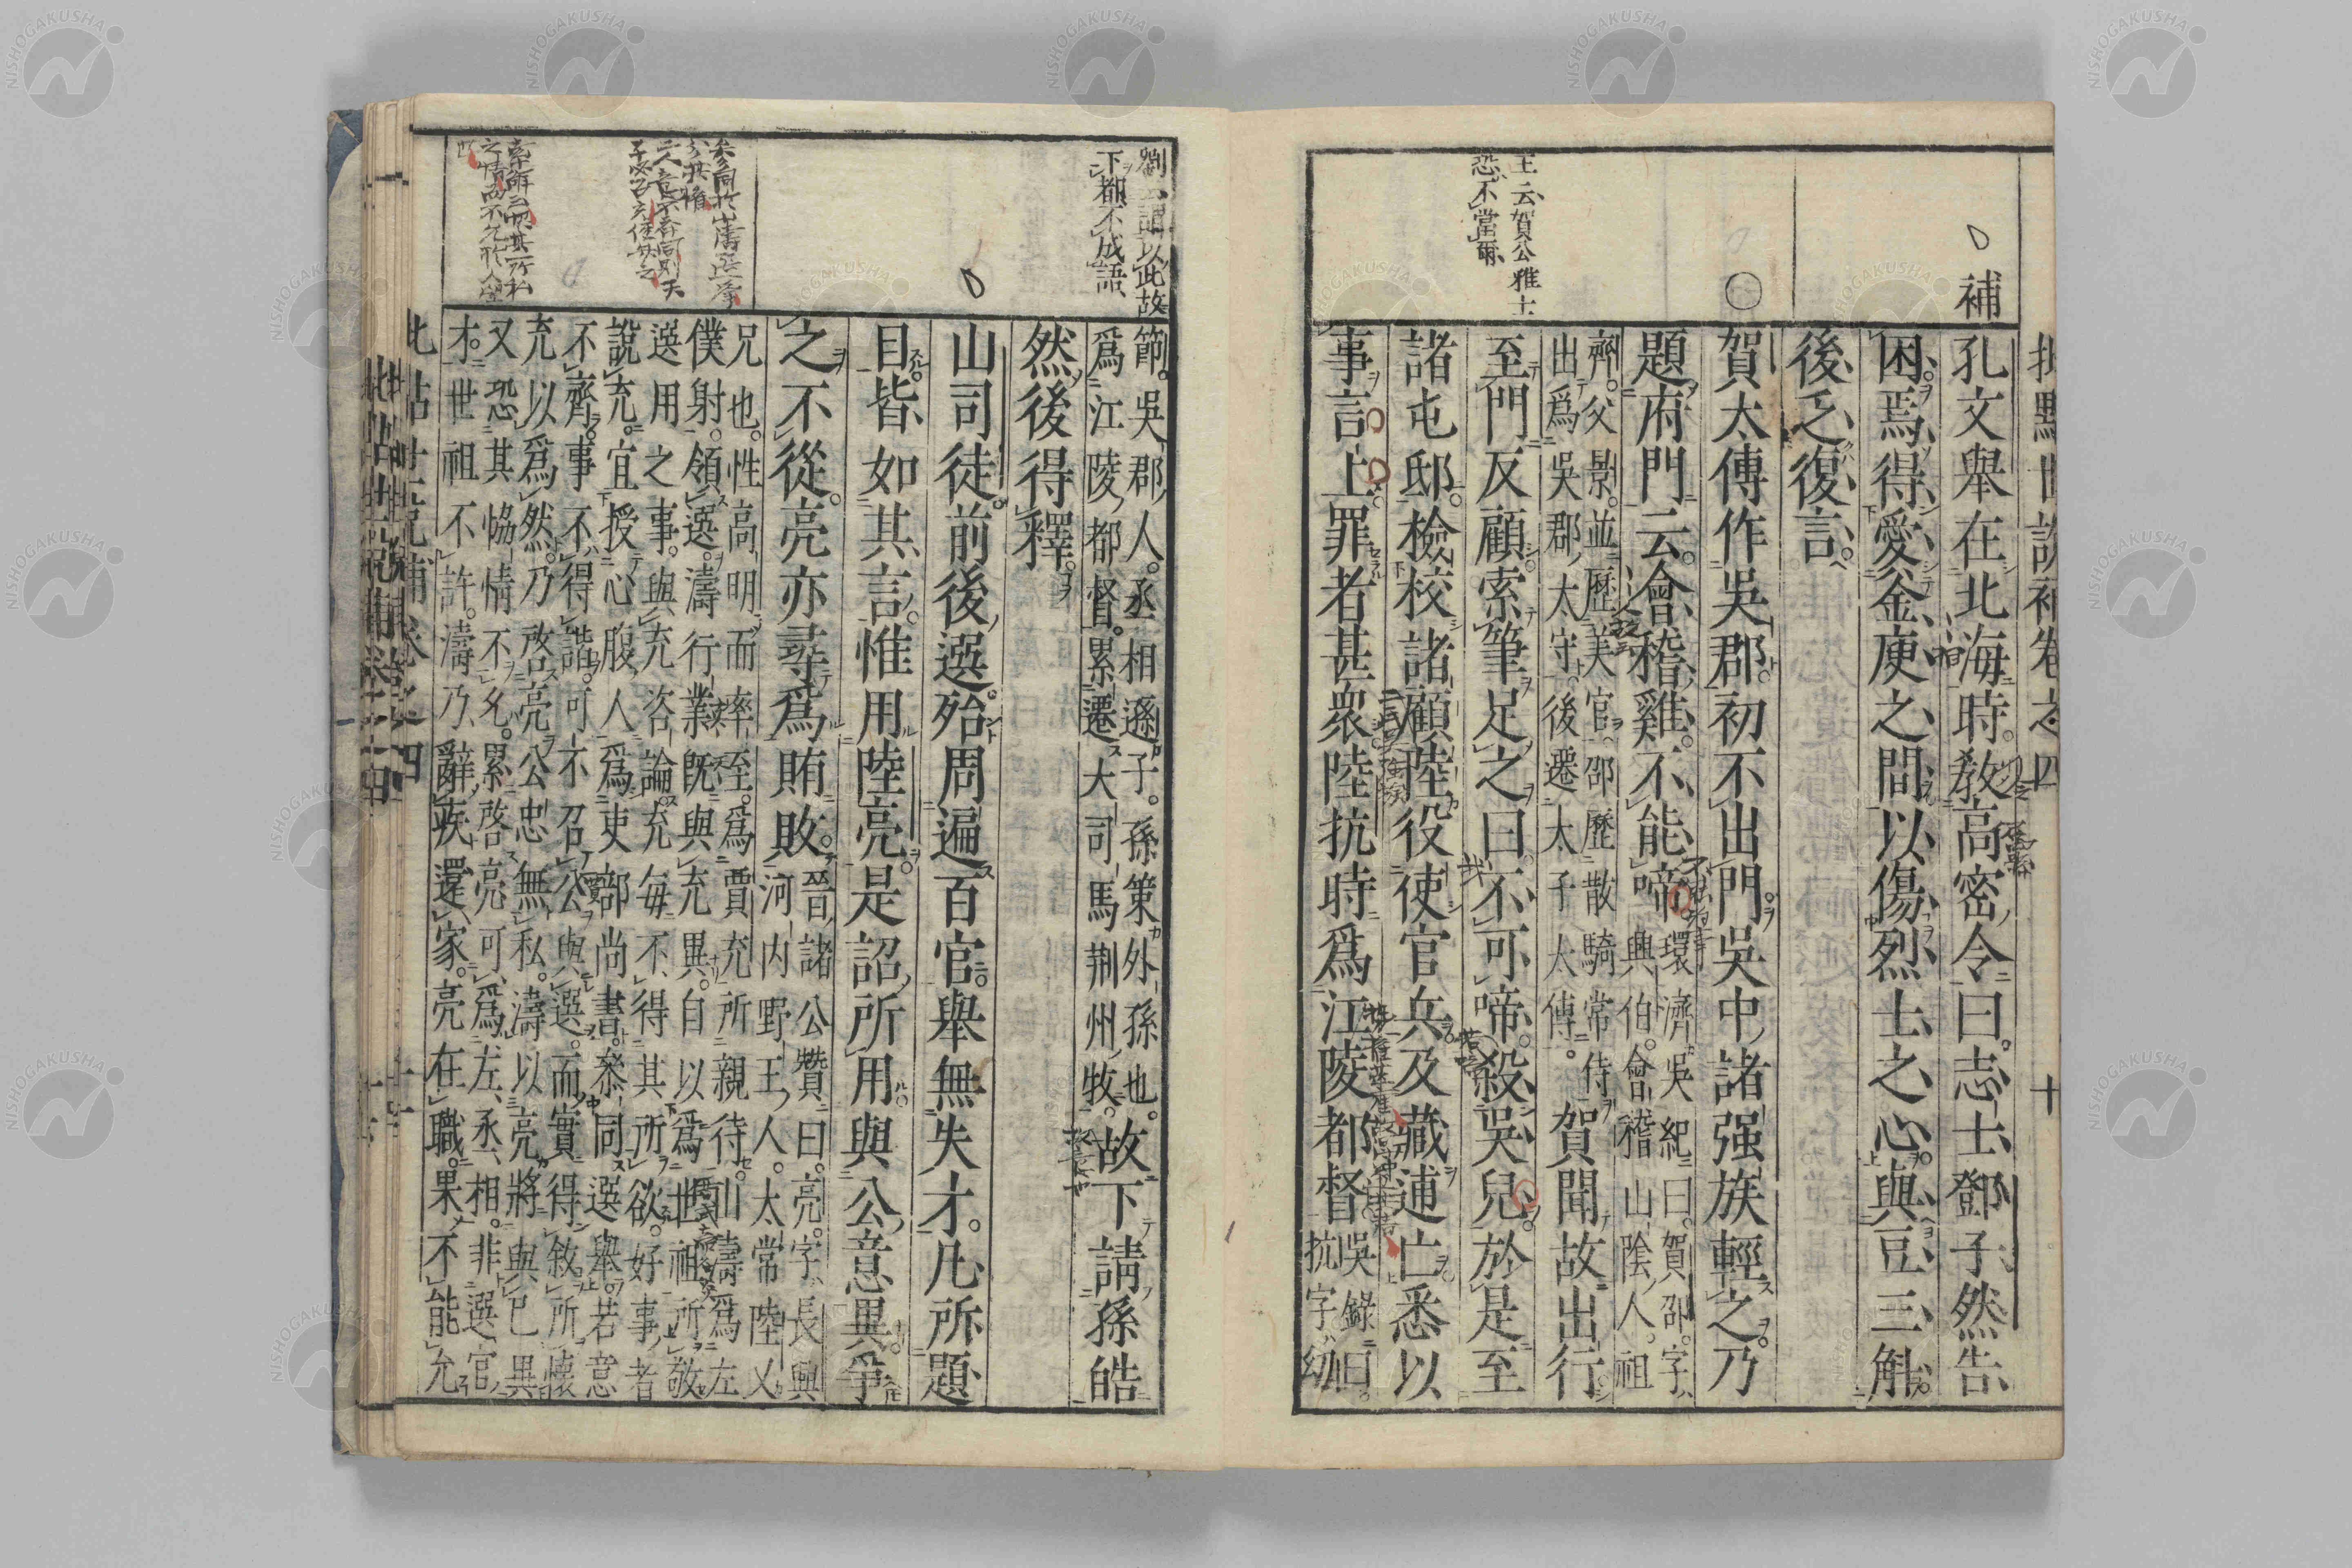 批點世說補卷之四 十
補
孔文舉在北海時教高密令曰志士鄧子然告
困焉得愛釜庾之間以傷烈士之心與豆三斛
後乏復言
賀太傅作吳郡初不出門吳中諸强族輕之乃
題府門云會稽雞不能啼
環濟吳紀曰賀邵字
興伯會稽山陰人祖
齊父景並歷美官邵歷散騎常侍
出爲吳郡太守後遷太子太傅
賀聞故出行
王云賀公雅士
恐不當爾
至門反顧索筆足之曰不可啼殺吳兒於是至
諸屯邸檢校諸顧陸役使官兵及藏逋亡悉以
事言上罪者甚衆陸抗時爲江陵都督
吳錄曰
抗字幼
劉云謂以此故
下都不成語
節吳郡人丞相遜子孫策外孫也
爲江陵都督累遷大司馬荆州牧
故下請孫皓
然後得釋
山司徒前後選殆周遍百官舉無失才凡所題
目皆如其言惟用陸亮是詔所用與公意異爭
之不從亮亦尋爲賄敗
晉諸公贊曰亮字長興
河内野王人太常陸乂
兄也性高明而率至爲賈充所親待山濤爲左
僕射領選濤行業既與充異自以爲世祖所敬
選用之事與充咨論充每不得其所欲好事者
說充宜授心腹人爲吏部尚書叅同選舉若意
不齊事不得諧可不召公與選而實得敘所懷
充以爲然乃啓亮公忠無私濤以亮將與己異
又恐其協情不允累啓亮可爲左丞相非選官
才世祖不許濤乃辭疾還家亮在職果不能允
批點世說補卷之四 十一